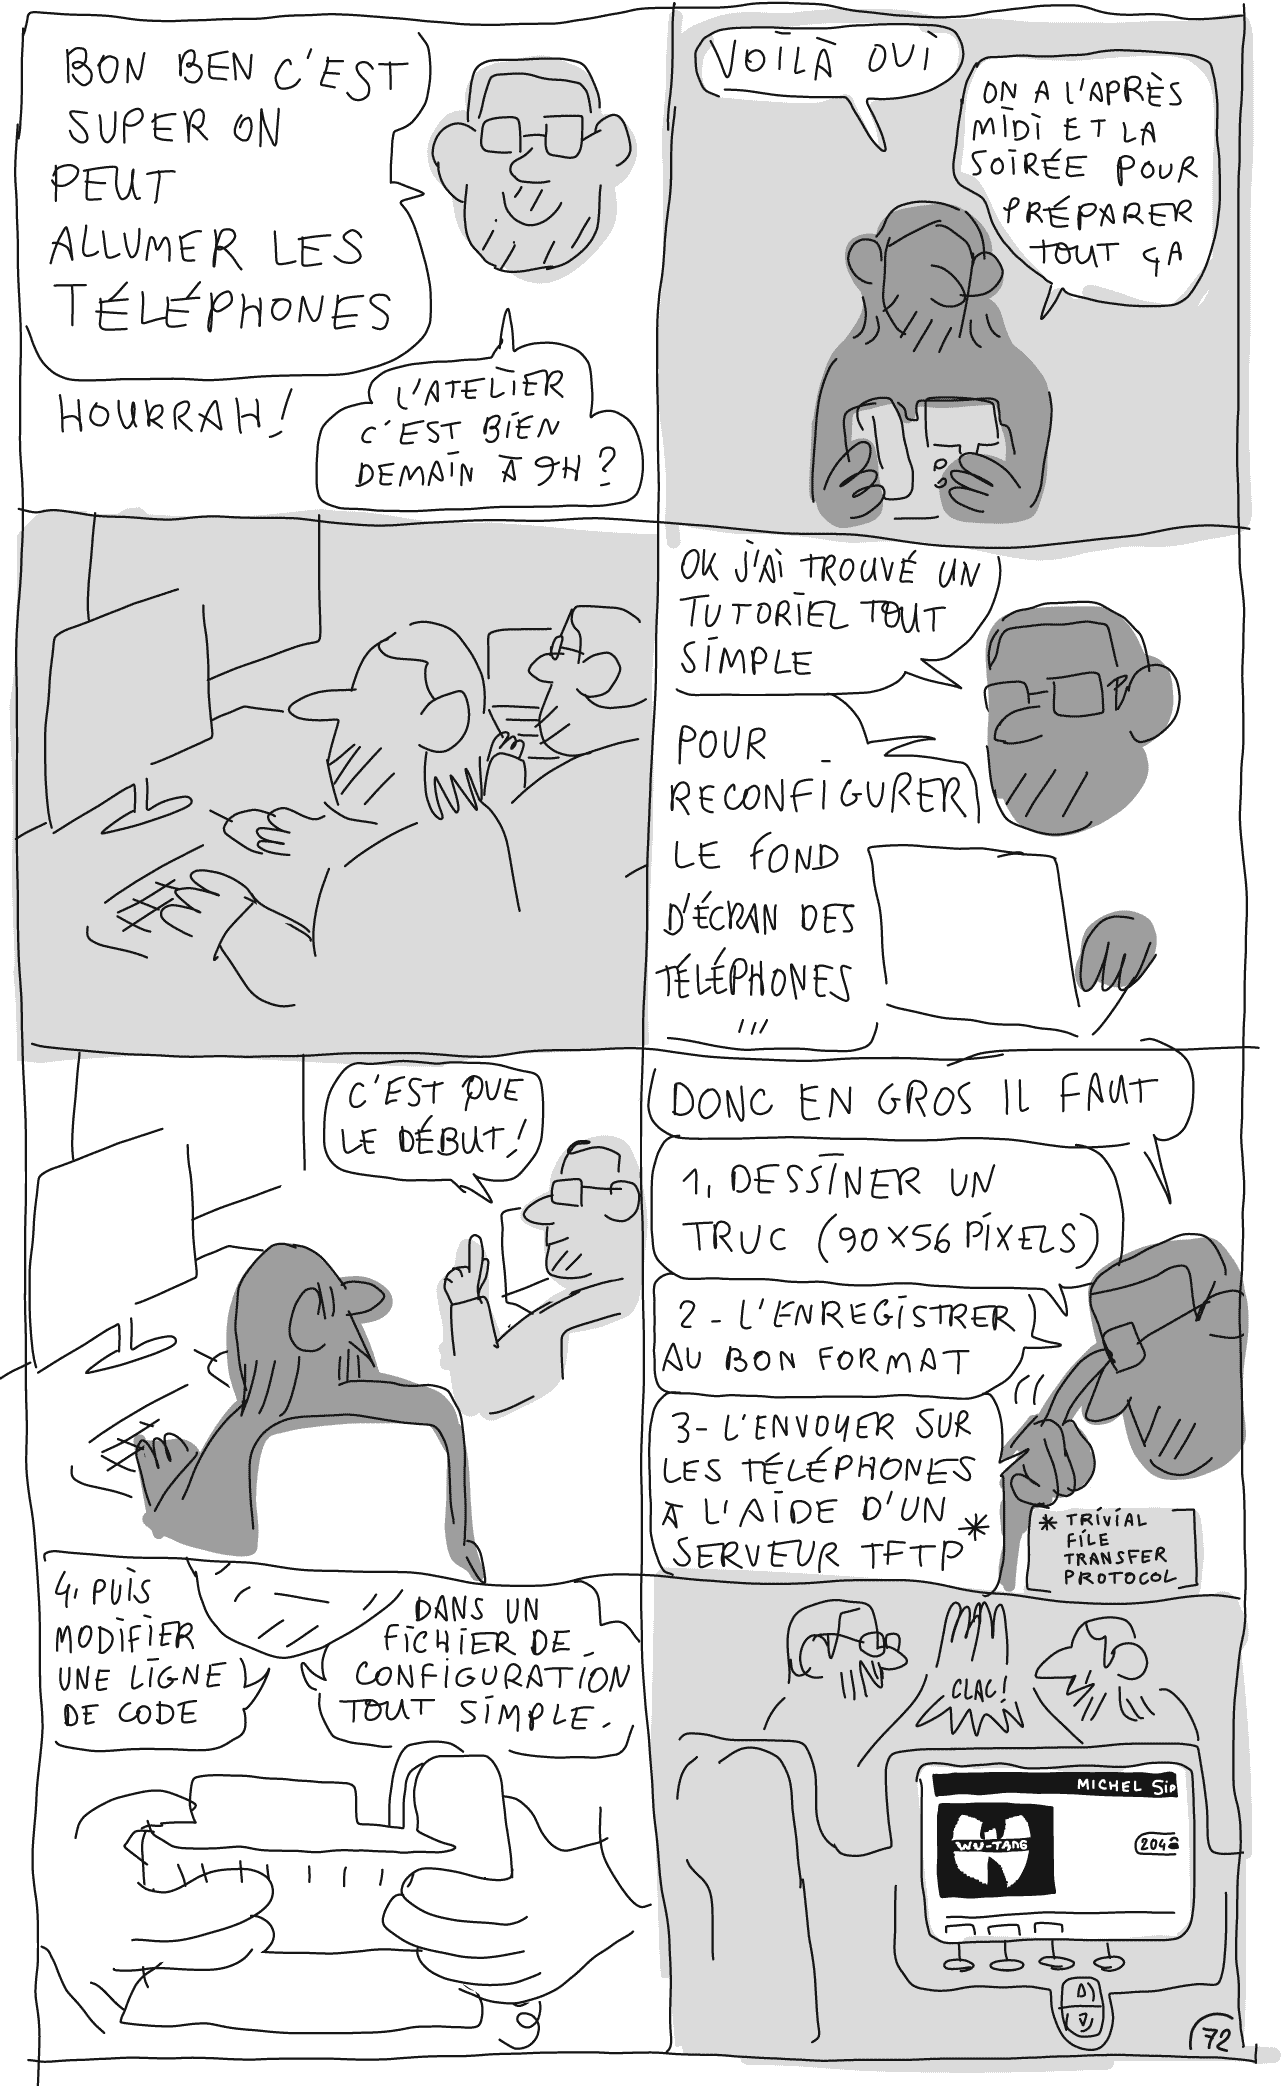 BON BEN C'EST
SUPER ON
PEUT
ALLUMER LES
TÉLÉPHONES
HOURRAH!
L'ATELIER
C'EST BIEN
DEMAIN À 9H ?
VOILÀ OUI
ON A L'APRÈS
MIDI ET LA
SOIRÉE POUR
PRÉPARER
TOUT ÇA
OK J'AI TROUVÉ UN
TUTORIEL TOUT
SIMPLE
POUR
RECONFIGURER
LE FOND
D'ÉCRAN DES
TÉLÉPHONES
C'EST QUE
LE DÉBUT!
DONC EN GROS IL FAUT
1, DESSINER UN
TRUC (90×56 PIXELS)
2 - L'ENREGISTRER
AU BON FORMAT
3- L'ENVOYER SUR
LES TÉLÉPHONES
À L'AIDE D'UN
SERVEUR TFTP*
* TRIVIAL
FILE
TRANSFER
PROTOCOL
4, PUIS
MODIFIER
UNE LIGNE
DE CODE
DANS UN
FICHIER DE
CONFIGURATION
TOUT SIMPLE.
CLAC!
MICHEL Sip
WU-TANG
204
72